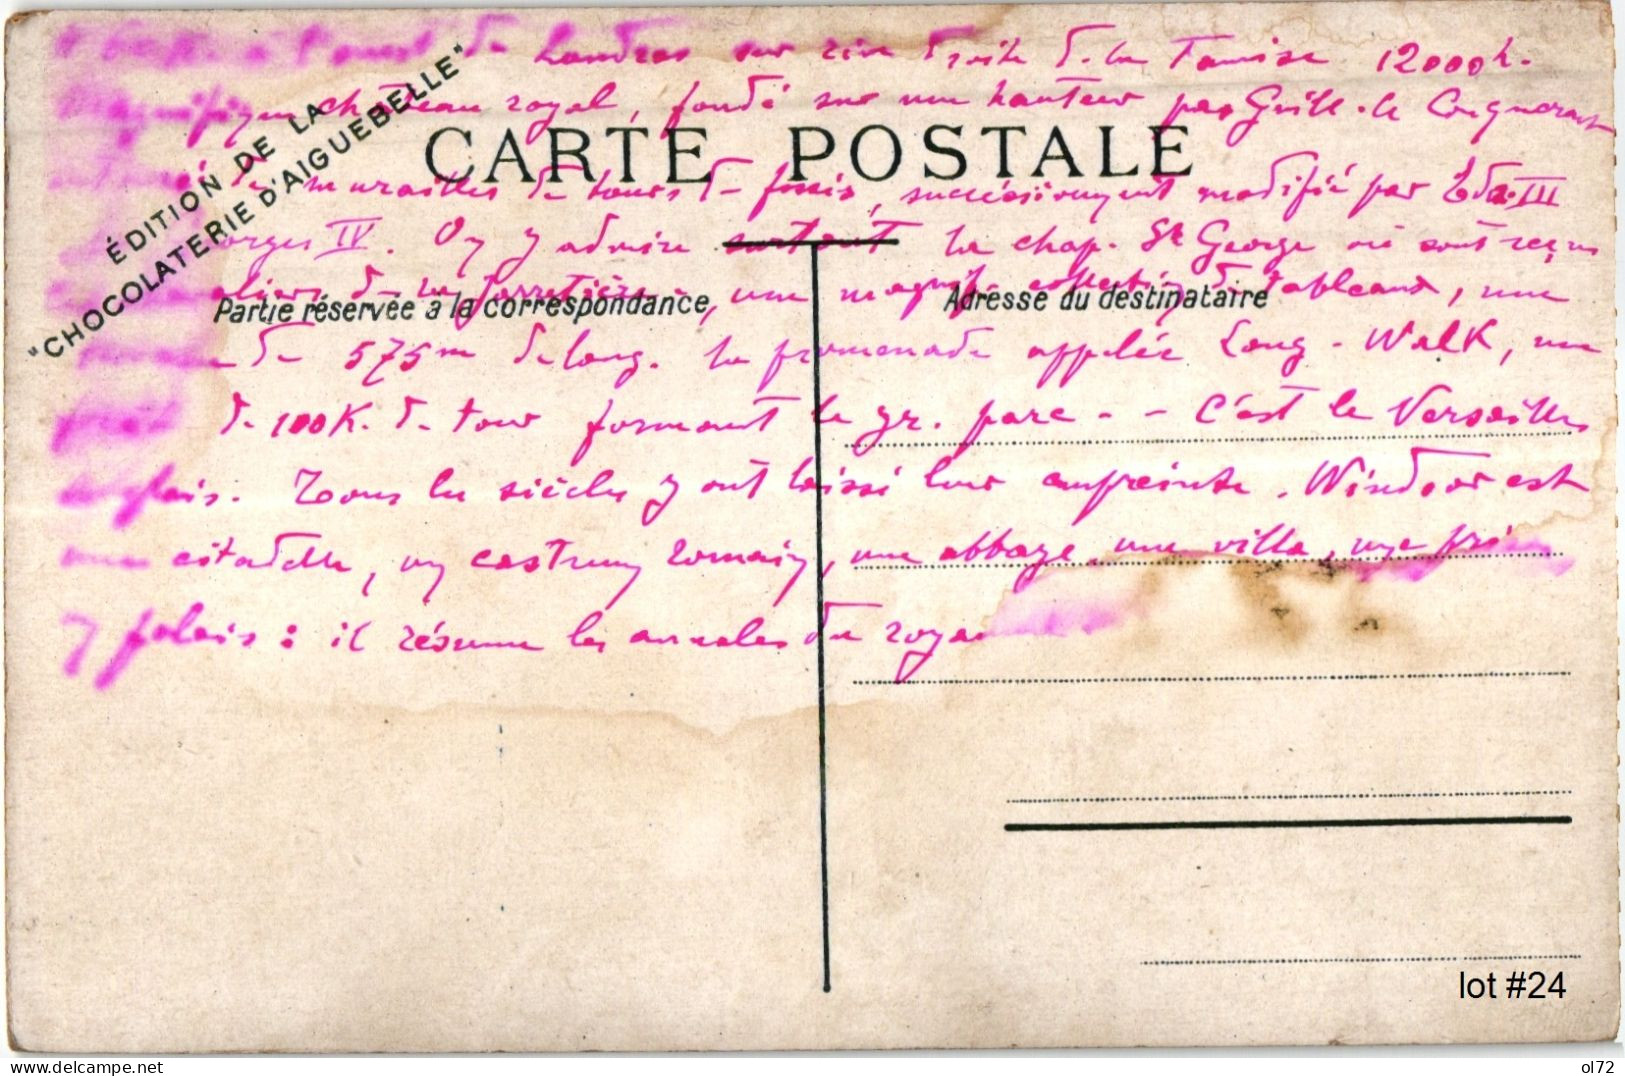 à l'ouest de Londres sur rive droite de la Tamise 12000 h.
Magnifique château royal, fondé sur une hauteur par Guill. le Conquérant
entouré de murailles de tours de fossés, successivement modifié par Ed. III
Georges IV. On y admire surtout la chap. St George où sont reçus
de la jarretière, une magnif. collection de tableaux, une
terrasse de 575m de long. la promenade appelée Long-Walk, une
de 100K. de tour formant le gr. parc - - C'est le Versailles
anglais. Tous les siècles y ont laissé leur empreinte. Windsor est
une citadelle, un castrum romain, une abbaye, une ville, une
un palais : il résume les annales du
ÉDITION DE LA
"CHOCOLATERIE D'AIGUEBELLE"
CARTE POSTALE
Partie réservée à la correspondance
Adresse du destinataire
lot #24
delcampe.net
ol72